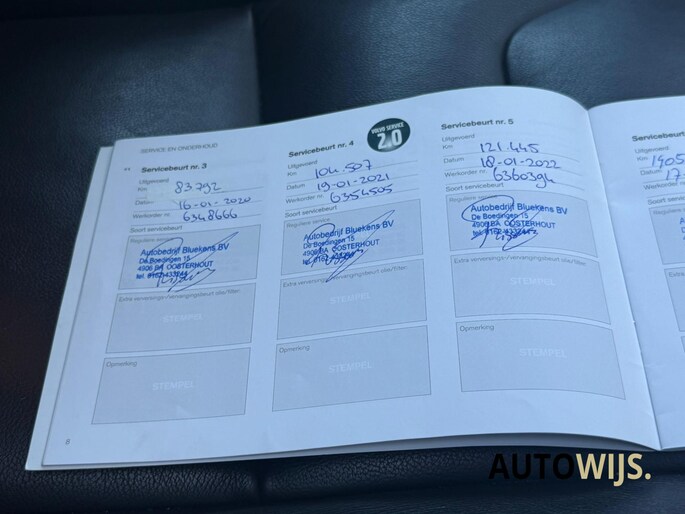 SERVICE EN ONDERHOUD
Servicebeurt nr. 3
Uitgevoerd
Km 83792
Datum 16-01-2020
Werkorder nr. 6348666
Soort servicebeurt
Reguliere service
Autobedrijf Bluekens BV
De Boedingen 15
4906 BA OOSTERHOUT
tel.
Extra verversings-/vervangingsbeurt olie/filter:
STEMPEL
Opmerking
STEMPEL
6
Servicebeurt nr. 4
VOLVO SERVICE
2.0
Uitgevoerd
Km 104.507
Datum 19-01-2021
Werkorder nr. 6354505
Soort servicebeurt
Reguliere service
Autobedrijf Bluekens BV
De Boedingen 15
4906 BA OOSTERHOUT
tel.
Extra verversings-/vervangingsbeurt olie/filter:
STEMPEL
Opmerking
STEMPEL
Servicebeurt nr. 5
Uitgevoerd
Km 121.445
Datum 18-01-2022
Werkorder nr. 6360394
Soort servicebeurt
Reguliere service
Autobedrijf Bluekens BV
De Boedingen 15
4906 BA OOSTERHOUT
tel.
Extra verversings-/vervangingsbeurt olie/filter:
STEMPEL
Opmerking
STEMPEL
Servicebeurt
Uitgevoerd
Km
Datum 17-
Werkorder nr.
Soort service
AUTOWIJS.